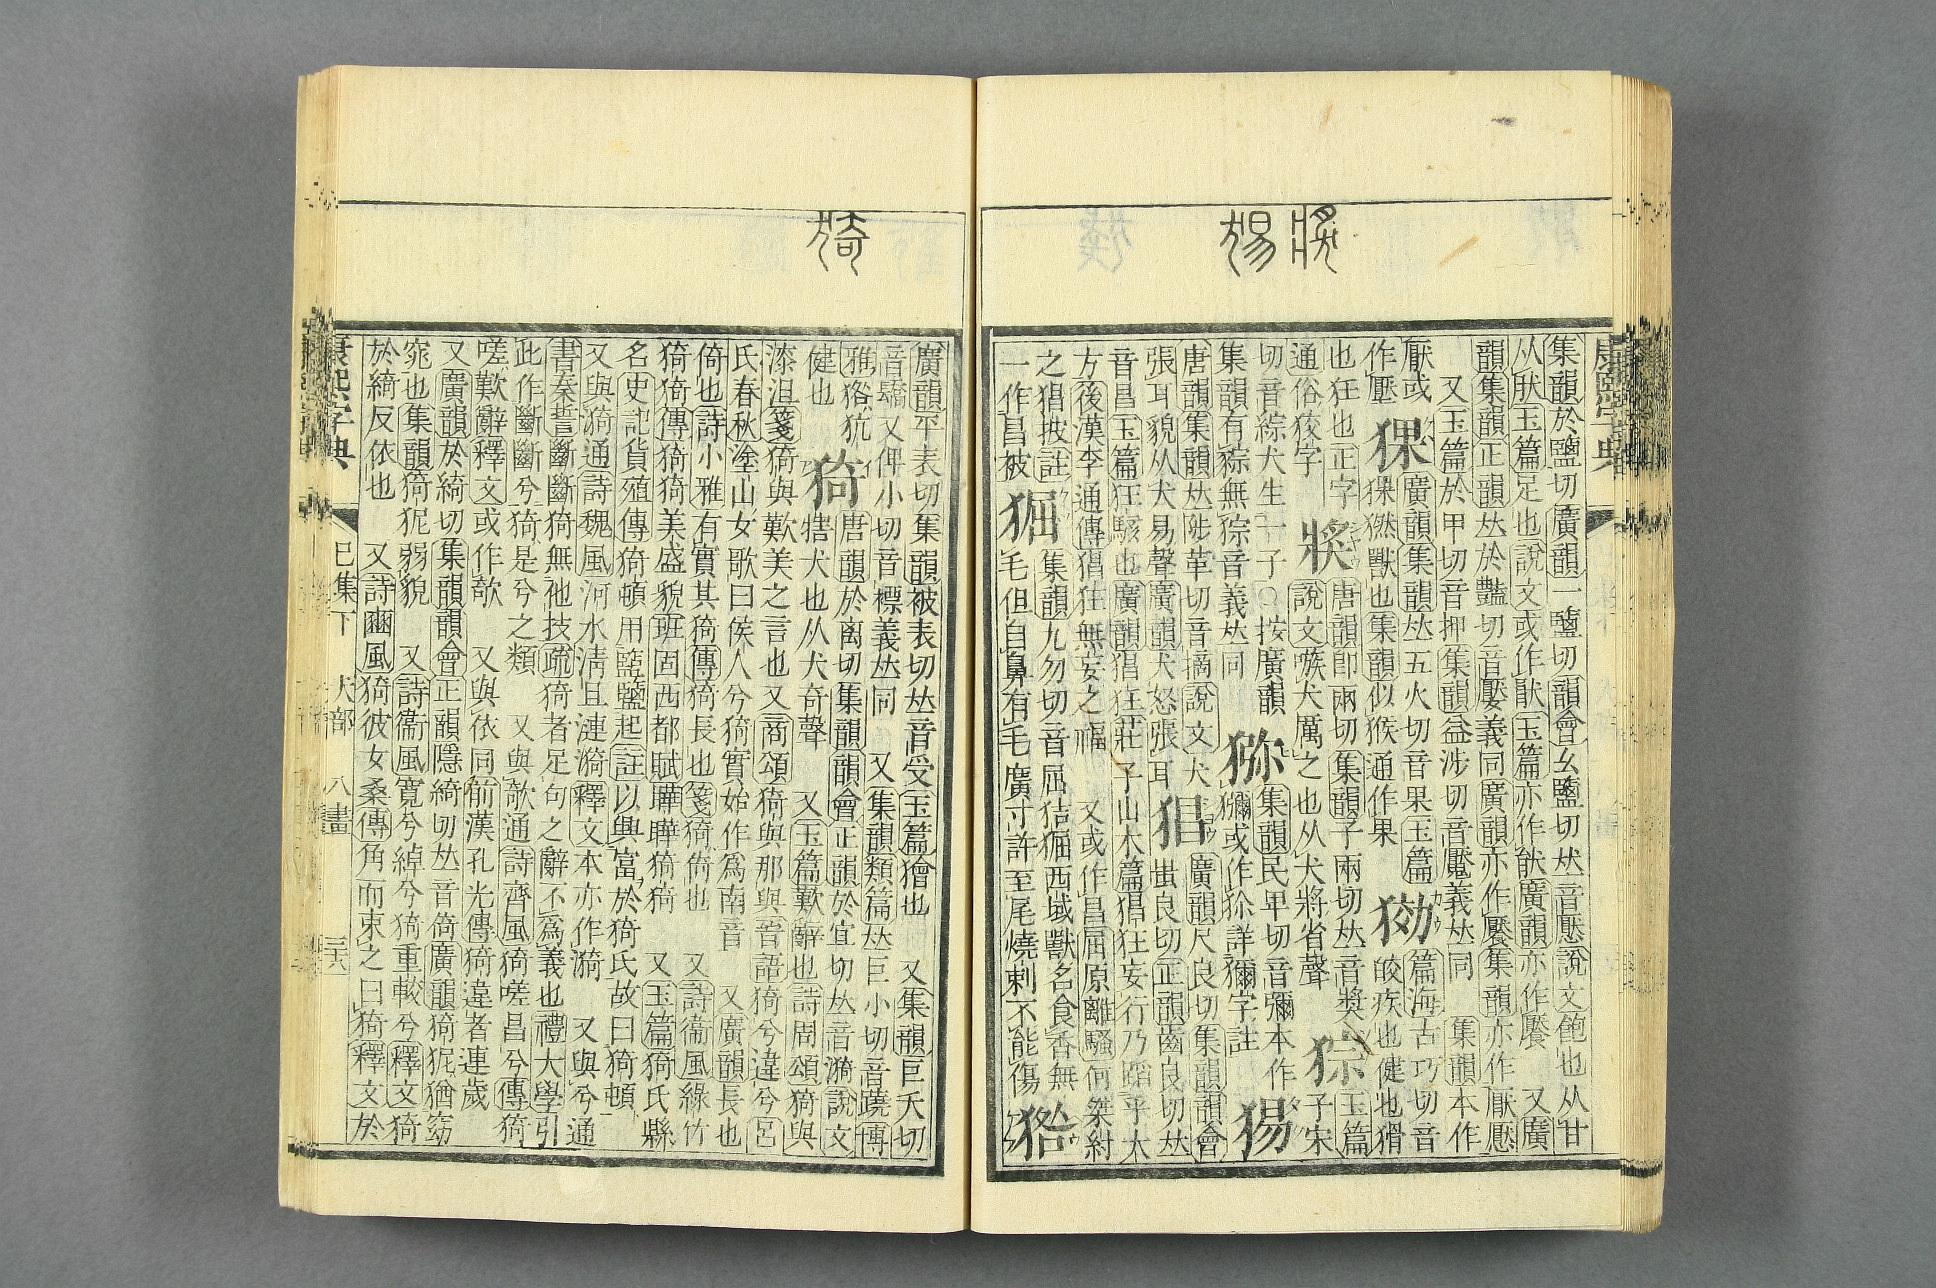 獎
猲
集韻於鹽切廣韻一鹽切韻會幺鹽切𠀤音懕說文飽也从甘
从肰玉篇足也說文或作猒玉篇亦作猒廣韻亦作饜 又廣
韻集韻正韻𠀤於豔切音厭義同廣韻亦作饜集韻亦作厭懕
又玉篇於甲切音押集韻益涉切音魘義𠀤同 集韻本作
厭或
作壓
猓
廣韻集韻𠀤五火切音果玉篇
猓然獸也集韻似猴通作果
㺃
篇海古巧切音
皎疾也健也猾
也狂也正字
通俗狡字
奬
唐韻卽兩切集韻子兩切𠀤音奬
說文嗾犬厲之也从犬將省聲
猔
玉篇
子宋
切音綜犬生一子○按廣韻
集韻有猔無猔音義𠀤同
猕
集韻民畢切音彌本作
獼或作狝詳獮字註
猲
唐韻集韻𠀤陟革切音摘說文犬
張耳貌从犬易聲廣韻犬怒張耳
猖
廣韻尺良切集韻韻會
蚩良切正韻齒良切𠀤
音昌玉篇狂駭也廣韻猖狂莊子山木篇猖狂妄行乃蹈乎大
方後漢李通傳猖狂無妄之福 又或作昌屈原離騷何桀紂
之猖披註
一作昌被
猚
集韻九勿切音屈狤㹷西域獸名食香無
毛但自鼻有毛廣寸許至尾燒刺不能傷
㹾
猗
廣韻平表切集韻被表切𠀤音受玉篇獪也 又集韻巨夭切
音驕又俾小切音標義𠀤同 又集韻類篇𠀤巨小切音蹺博
雅狢㹧
健也
猗
唐韻於离切集韻韻會正韻於宜切𠀤音漪說文
犗犬也从犬奇聲 又玉篇歎辭也詩周頌猗與
漆沮箋猗與歎美之言也又商頌猗與那與晉語猗兮違兮呂
氏春秋塗山女歌曰候人兮猗實始作爲南音 又廣韻長也
倚也詩小雅有實其猗傳猗長也箋猗倚也 又詩衞風綠竹
猗猗傳猗猗美盛貌班固西都賦曄曄猗猗 又玉篇猗氏縣
名史記貨殖傳猗頓用盬鹽起註以興富於猗氏故曰猗頓
又與漪通詩魏風河水淸且漣漪釋文本亦作漪 又與兮通
書秦誓斷斷猗無他技疏猗者足句之辭不爲義也禮大學引
此作斷斷兮猗是兮之類 又與欹通詩齊風猗嗟昌兮傳猗
嗟歎辭釋文或作欹 又與依同前漢孔光傳猗違者連歲
又廣韻於綺切集韻韻會正韻隱綺切𠀤音倚廣韻猗狔猶窈
窕也集韻猗狔弱貌 又詩衞風寬兮綽兮猗重較兮釋文猗
於綺反依也 又詩豳風猗彼女桑傳角而束之曰猗釋文於
康熙字典 巳集下 犬部 八畫 三六